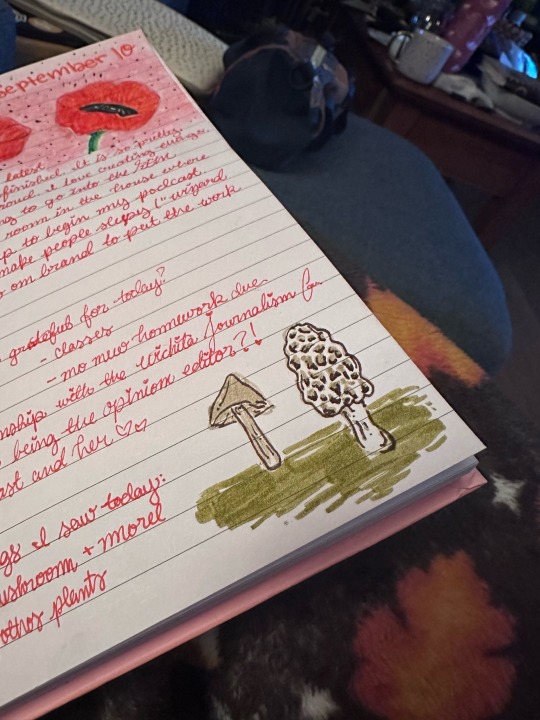 September 10
latest
finished. It is so pretty
proud. I love creating things.
to go into the
room in the house where
up to begin my podcast.
make people sleepy ("wizard
on brand to put the work
grateful for today?
- classes
- no new homework due.
with the Wichita Journalism
being the opinion editor?!
and her ♡♡
I saw today:
+ morel
other plants